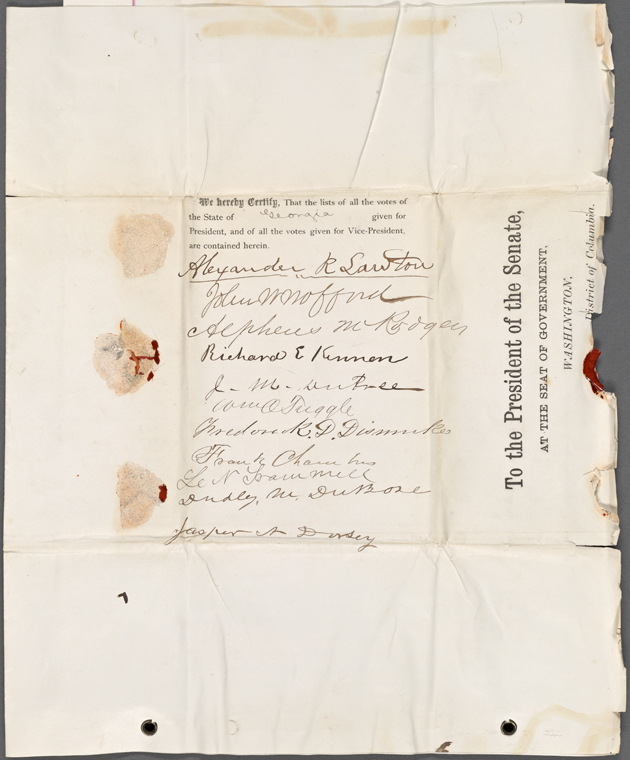 We hereby Certify, That the lists of all the votes of
the State of Georgia given for
President, and of all the votes given for Vice-President,
are contained herein.
Alexander R Lawton
John W Wofford
Alpheus M Rodgers
Richard E Kennon
J. M. DuPree
Wm O Tuggle
Frederick. D. Dismuke
Frank Chambers
L N Trammell
Dudley. M. DuBose
Jasper N Dorsey
To the President of the Senate,
AT THE SEAT OF GOVERNMENT,
WASHINGTON,
District of Columbia.